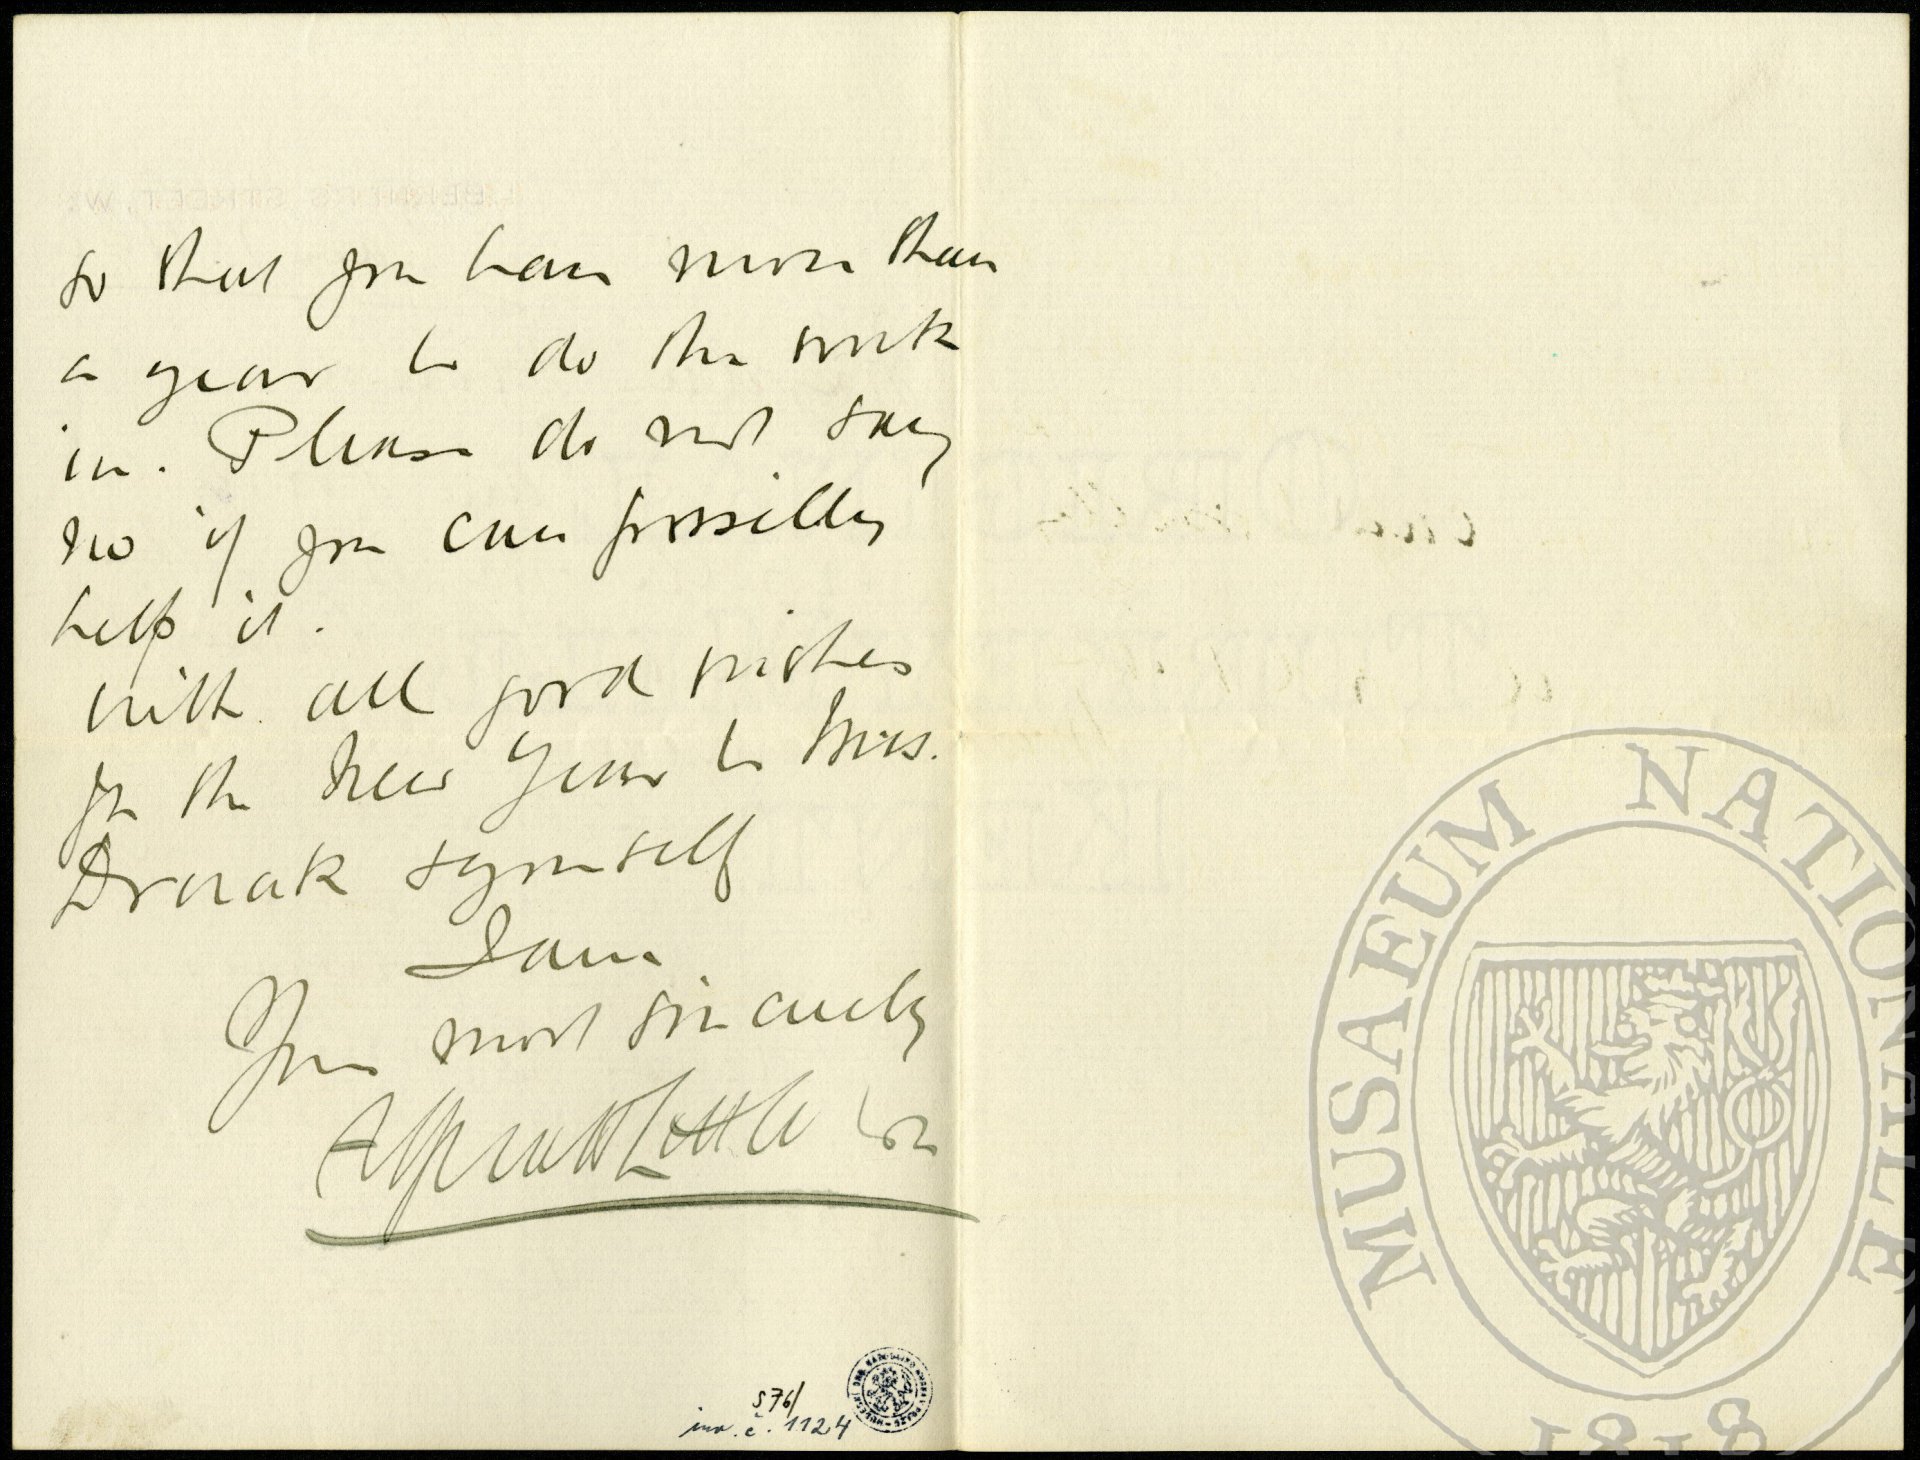 1 BERNERS STREET, W.
so that you have more than
a year to do the work
in. Please do not say
no if you can possibly
help it.
With all good wishes
for the New Year to Mrs.
Dvorak & yourself
I am
Yours most sincerely
Alfred H Littleton
576/
inv. č. 1124
MUSAEUM NATIONALE
1818